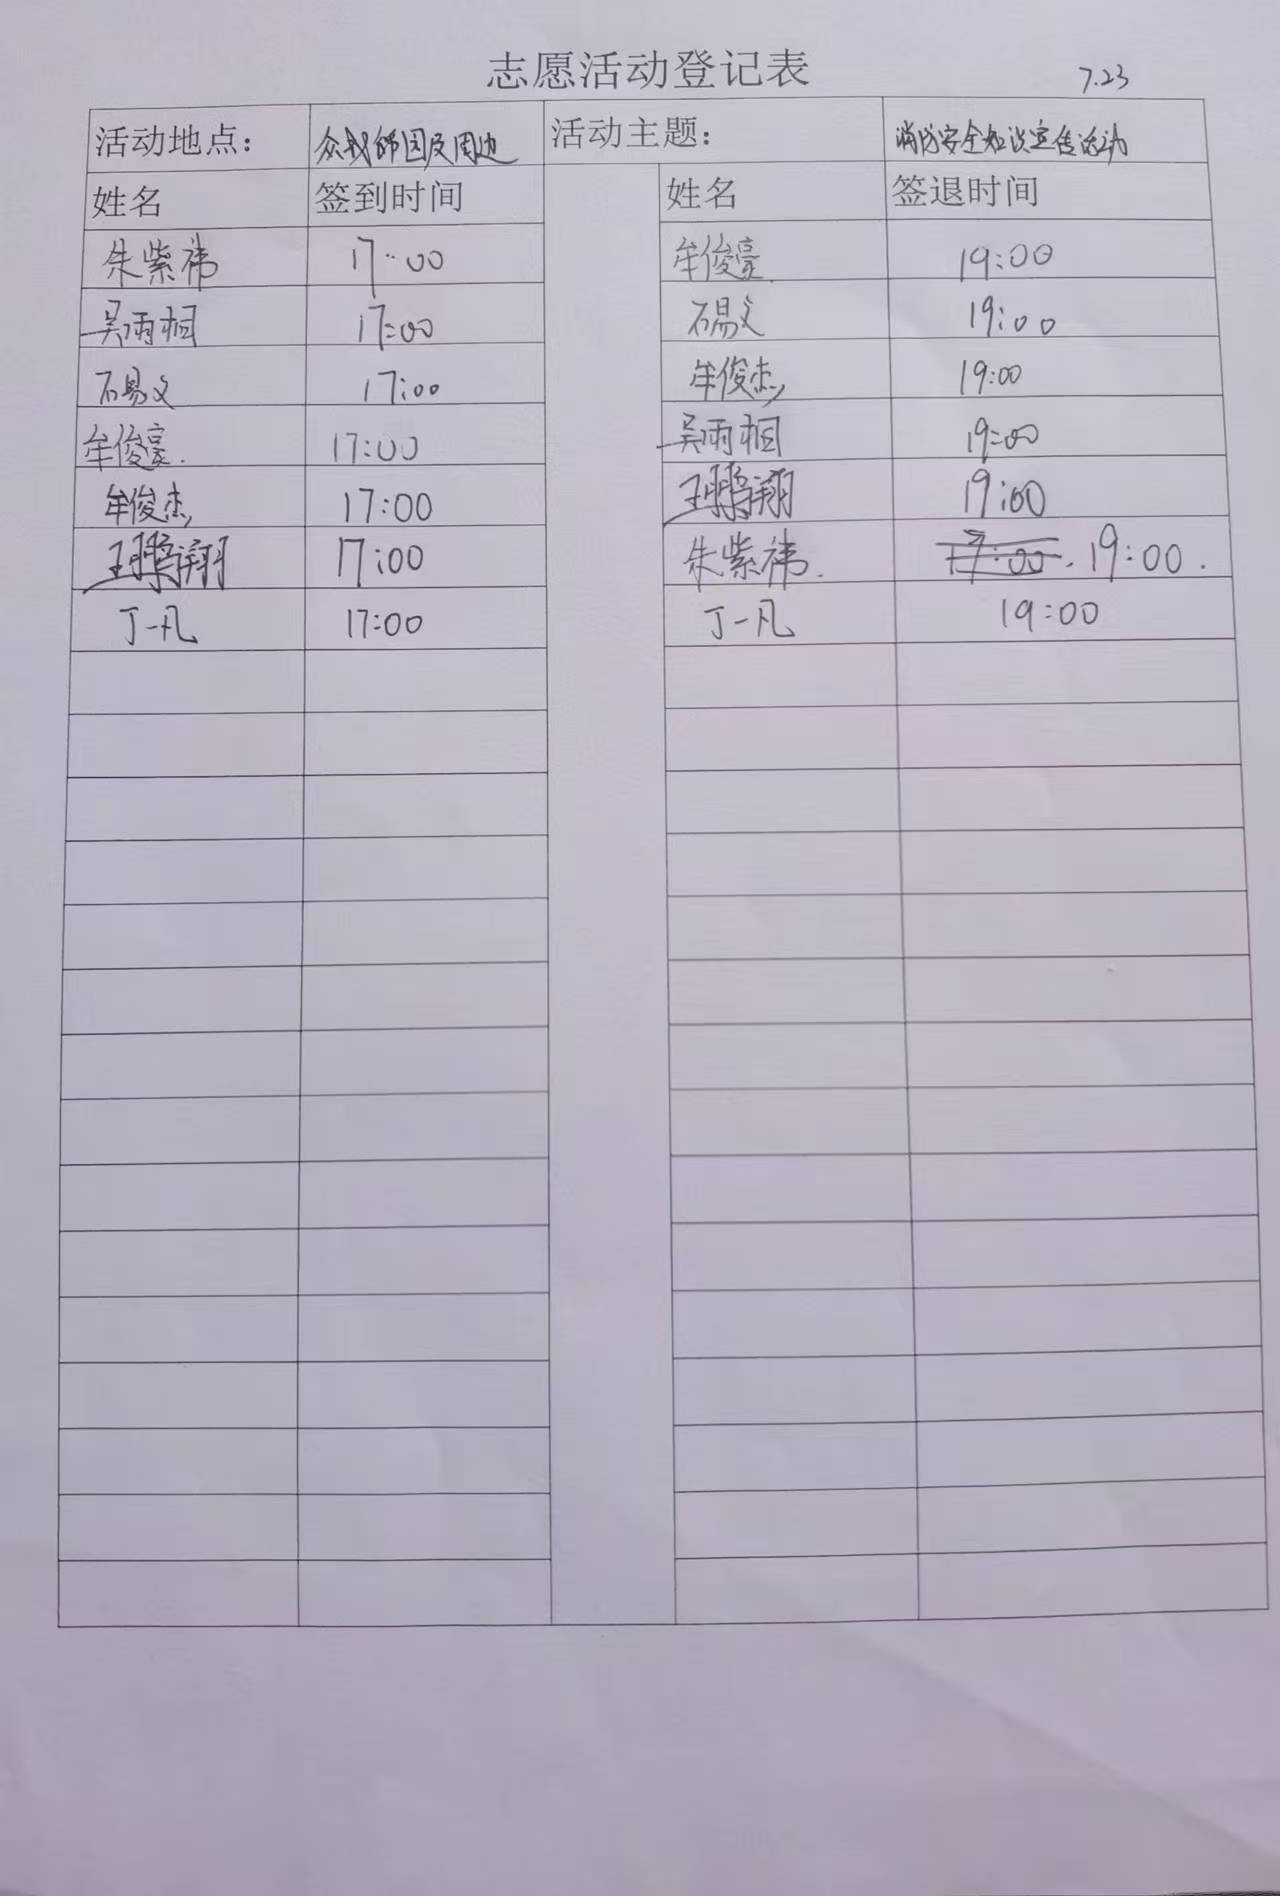 志愿活动登记表 7.23
活动地点： 众我师园及周边 活动主题： 消防安全知识宣传活动
姓名 签到时间 姓名 签退时间
朱紫祎 17:00 牟俊豪 19:00
吴雨桐 17:00 石易文 19:00
石易文 17:00 牟俊杰 19:00
牟俊豪 17:00 吴雨桐 19:00
牟俊杰 17:00 王鹏翔 19:00
王鹏翔 17:00 朱紫祎 17:00 19:00
丁一凡 17:00 丁一凡 19:00